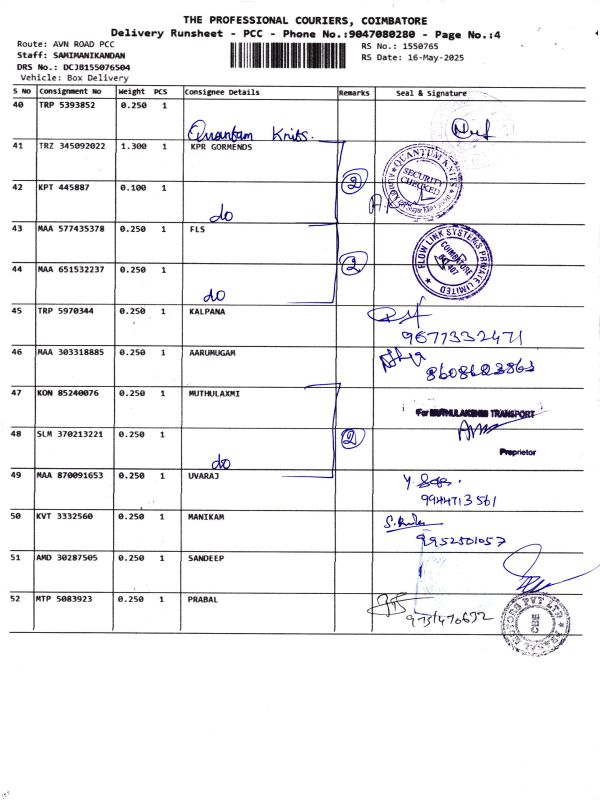 THE PROFESSIONAL COURIERS, COIMBATORE
Delivery Runsheet - PCC - Phone No.:9047080280 - Page No.:4
Route: AVN ROAD PCC
RS No.: 1550765
Staff: SAMIMANIKANDAN
RS Date: 16-May-2025
DRS No.: DCJB155076504
Vehicle: Box Delivery
S No Consignment No Weight PCS Consignee Details Remarks Seal & Signature
40 TRP 5393852 0.250 1
Quantam Knits.
41 TRZ 345092022 1.300 1 KPR GORMENDS
QUANTUM KNITS
SECURITY CHECKED
42 KPT 445887 0.100 1 2
do
43 MAA 577435378 0.250 1 FLS
FLOW LINK SYSTEMS PRIVATE LIMITED
COIMBATORE
44 MAA 651532237 0.250 1 2
do
45 TRP 5970344 0.250 1 KALPANA
9877332471
46 MAA 303318885 0.250 1 AARUMUGAM
47 KON 85240076 0.250 1 MUTHULAXMI
For MUTHULAKSHMI TRANSPORT
48 SLM 370213221 0.250 1 2
Proprietor
do
49 MAA 870091653 0.250 1 UVARAJ
9944713561
50 KVT 3332560 0.250 1 MANIKAM
9952501057
51 AMD 30287505 0.250 1 SANDEEP
52 MTP 5083923 0.250 1 PRABAL
MOTORS PVT LTD
CBE